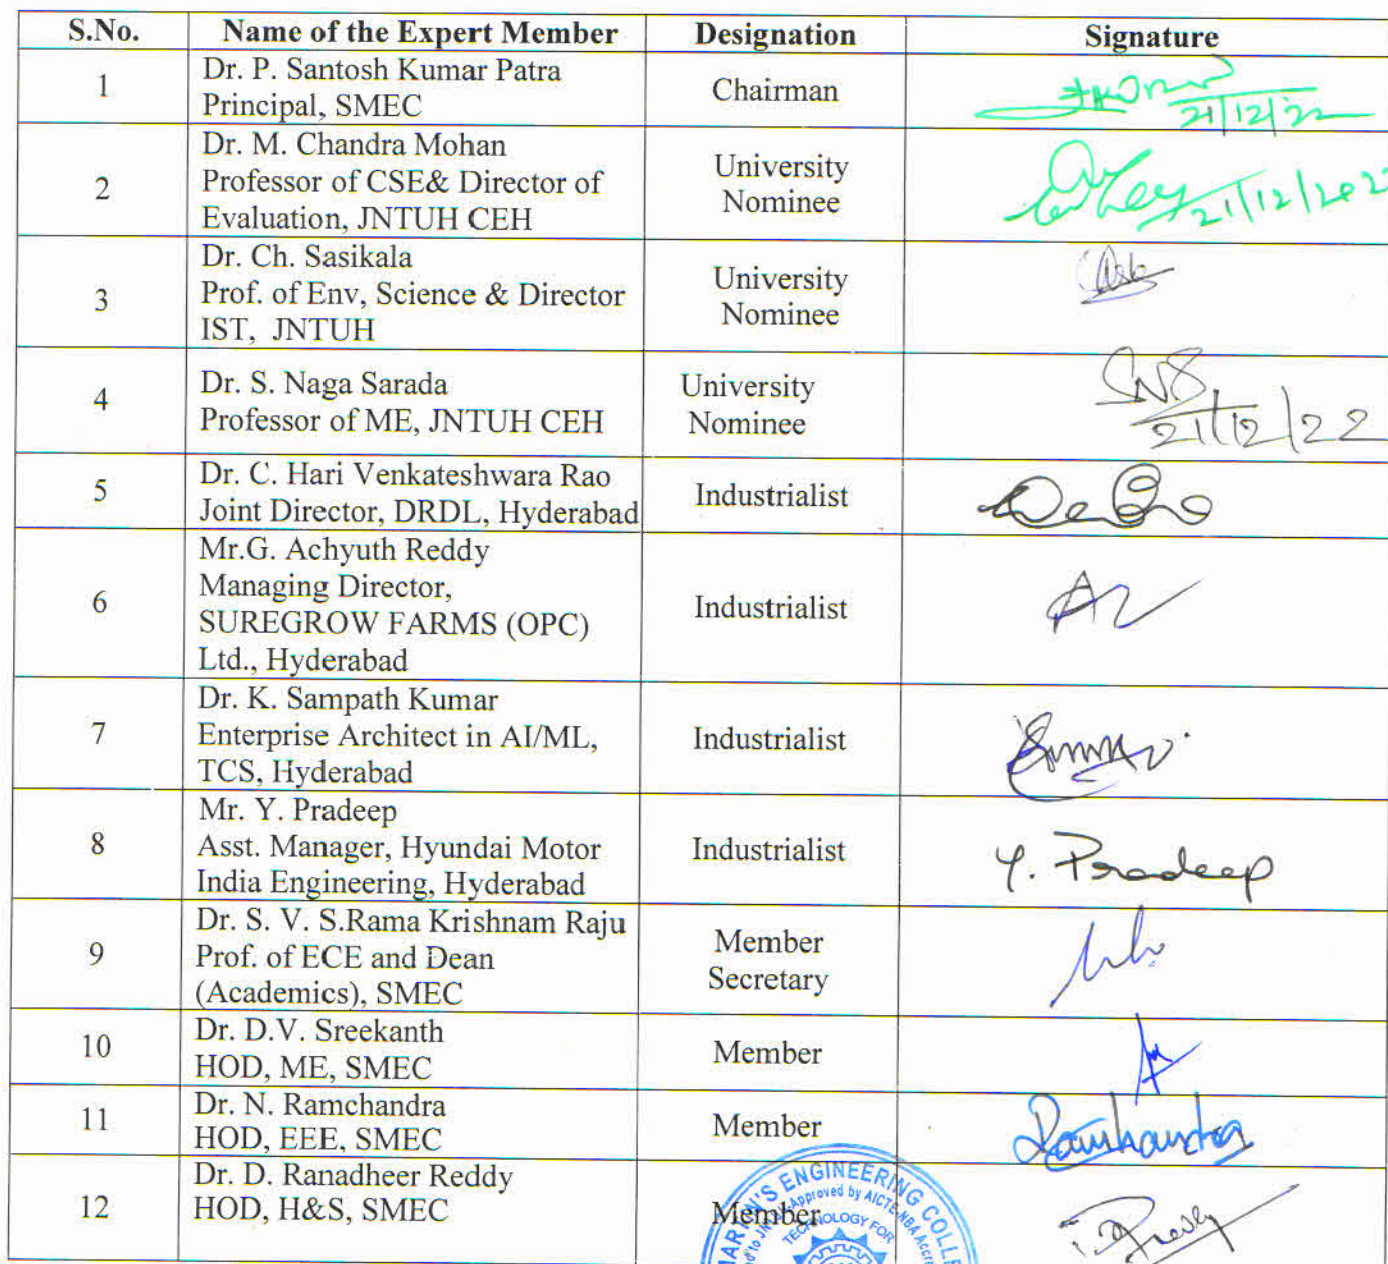 S.No. Name of the Expert Member Designation Signature
1 Dr. P. Santosh Kumar Patra
Principal, SMEC
Chairman
21/12/22
2 Dr. M. Chandra Mohan
Professor of CSE& Director of
Evaluation, JNTUH CEH
University
Nominee
21/12/202
3 Dr. Ch. Sasikala
Prof. of Env, Science & Director
IST, JNTUH
University
Nominee
4 Dr. S. Naga Sarada
Professor of ME, JNTUH CEH
University
Nominee
SNS
21/12/22
5 Dr. C. Hari Venkateshwara Rao
Joint Director, DRDL, Hyderabad
Industrialist
6 Mr.G. Achyuth Reddy
Managing Director,
SUREGROW FARMS (OPC)
Ltd., Hyderabad
Industrialist
7 Dr. K. Sampath Kumar
Enterprise Architect in AI/ML,
TCS, Hyderabad
Industrialist
8 Mr. Y. Pradeep
Asst. Manager, Hyundai Motor
India Engineering, Hyderabad
Industrialist
Y. Pradeep
9 Dr. S. V. S.Rama Krishnam Raju
Prof. of ECE and Dean
(Academics), SMEC
Member
Secretary
10 Dr. D.V. Sreekanth
HOD, ME, SMEC
Member
11 Dr. N. Ramchandra
HOD, EEE, SMEC
Member
Ramchandra
12 Dr. D. Ranadheer Reddy
HOD, H&S, SMEC
Member
ENGINEERING
Approved by AICTE, NBA
TECHNOLOGY FOR